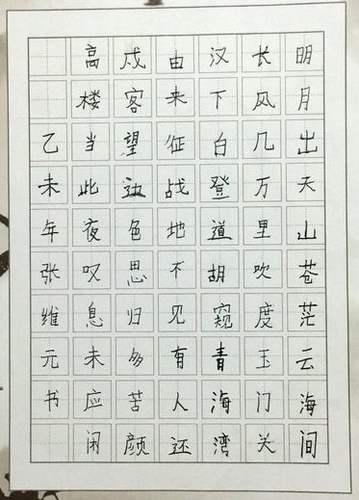 明月出天山苍茫云海间
长风几万里吹度玉门关
汉下白登道胡窥青海湾
由来征战地不见有人还
戍客望边色思归多苦颜
高楼当此夜叹息未应闲
乙未年张维元书